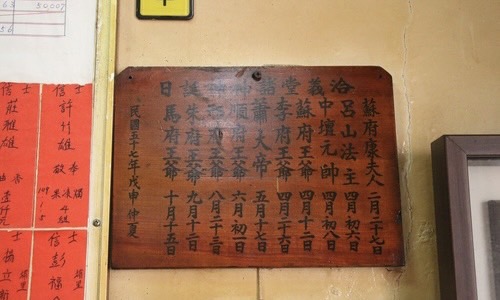 洽義堂諸神誕日
蘇府康夫人 二月二十七日
呂山法主 四月初六日
中壇元帥 四月初八日
蘇府王爺 四月十二日
李府王爺 四月二十六日
蕭大帝 五月十七日
順府王爺 六月初一日
府王爺 八月二十三日
朱府王爺 九月十二日
馬府王爺 十月十五日
民國五十七年戊申仲夏
信士 許 雄 敬
信士 莊雅雄
信士 彭福
信士